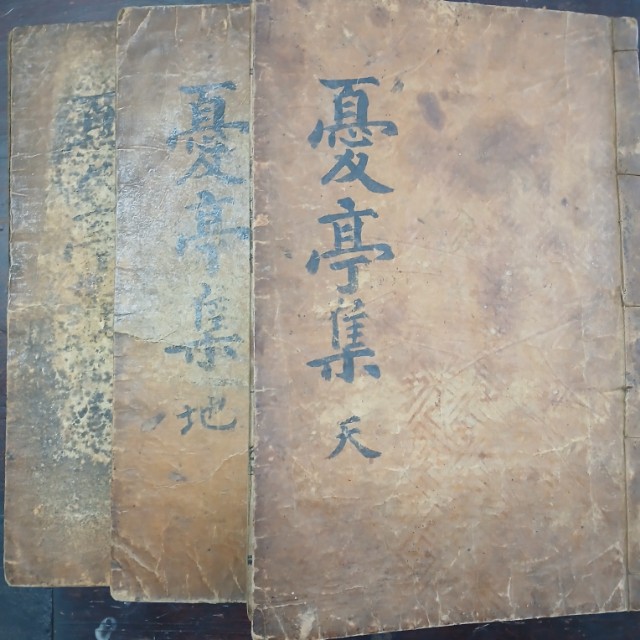 憂亭集 天
憂亭集 地